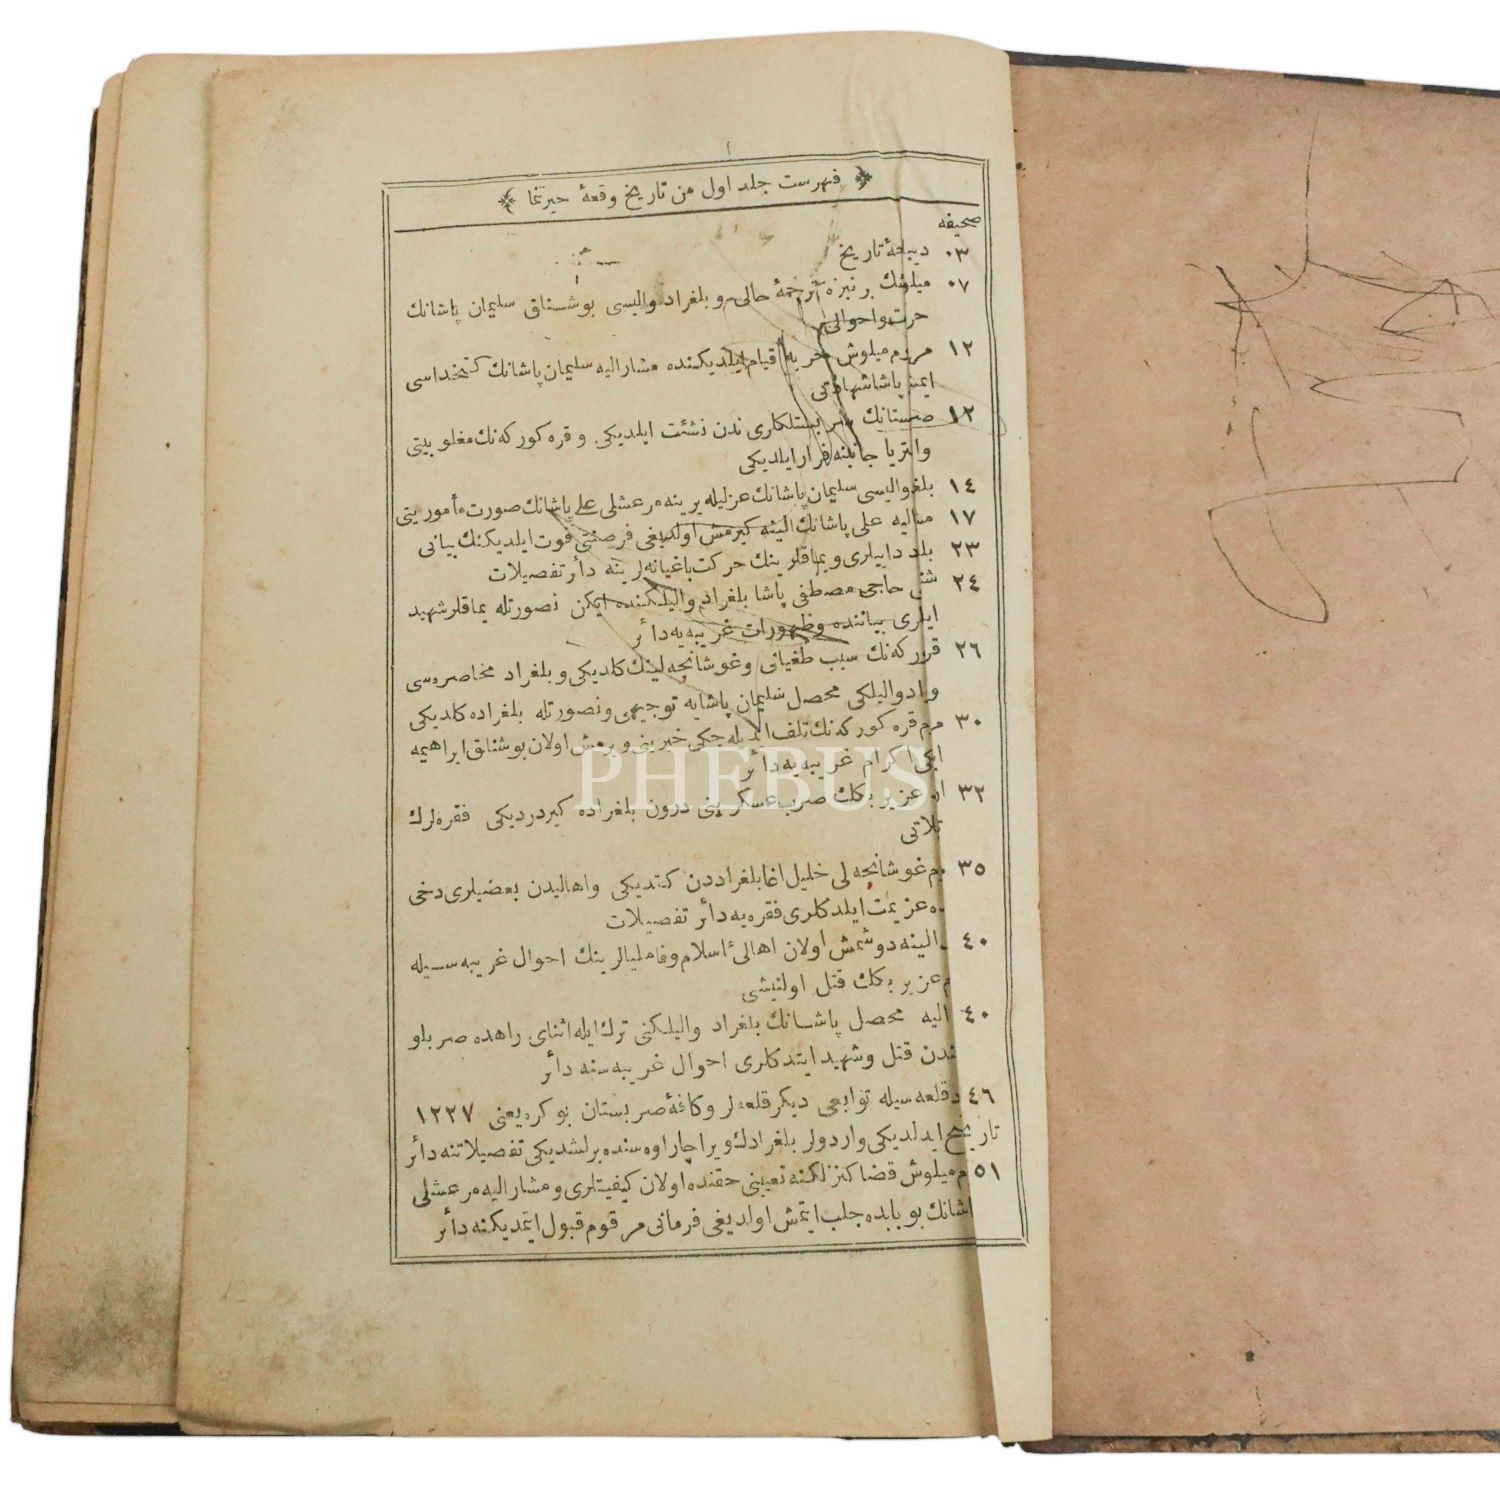 فهرست جلد اول من تاريخ وقعهٔ حيرتنما
صحيفه
٠٣ ديباجهٔ تاريخ
٠٧ ميلوشك برنبزه ترجمهٔ حالی و بلغراد واليسی بوشناق سليمان پاشانك
حرت واحوالی
١٢ مرقوم ميلوش قيام ايلديكنده مشار اليه سليمان پاشانك كتخداسی
امين پاشا شهادتی
١٢ صربستانك سربستلكلری ندن نشئت ايلديكی و قره كوركه نك مغلوبيتی
واوستريا جانبنه فرار ايلديكی
١٤ بلغراد واليسی سليمان پاشانك عزليله يرينه مرعشلی علی پاشانك صورت مأموريتی
١٧ مشاراليه علی پاشانك الينه كيرمش اولديغی فرصتی فوت ايلديكنك بيانی
٢٣ بلغراد داييلری و يماقلرينك حركت باغيانه لرينه دائر تفصيلات
٢٤ حاجی مصطفی پاشا بلغراد واليلكنده ايكن نصورتله يماقلر شهيد
ايلدكلری بياننده وظهورات غريبه يه دائر
٢٦ قره كوركه نك سبب طغيانی وغوشانجه لينك كلديكی و بلغراد محاصره سی
واليلكی محصل سليمان پاشايه توجيهی و نصورتله بلغراده كلديكی
٣٠ قره كوركه نك تلف ايديله جكی خبرينی و يرمش اولان بوشناق ابراهيمه
اكرام غريبه يه دائر
٣٢ عزير بكك صرب عسكرينی درون بلغراده كيردرديكی فقره لرك
٣٥ غوشانجه لی خليل اغا بلغراددن كتديكی واهاليدن بعضيلری دخی
عزيمت ايلدكلری فقره يه دائر تفصيلات
٤٠ الينه دوشمش اولان اهالئ اسلام وفاميليالرينك احوال غريبه سيله
عزير بكك قتل اولنيشی
٤٠ اليه محصل پاشانك بلغراد واليلكنی ترك ايله اثنای راهده صربلو
ندن قتل وشهيد ايتدكلری احوال غريبه سنه دائر
٤٦ قلعه سيله توابعی ديكر قلعه لر وكافهٔ صربستان بو كره يعنی ١٢٢٧
ايدلديكی واردولر بلغرادك ويراچار اوه سنده برلشديكی تفصيلاتنه دائر
٥١ ميلوش قضا كنزلكنه تعيينی حقنده اولان كيفيتلری ومشار اليه مرعشلی
پاشانك بو بابده جلب ايتمش اولديغی فرمانی مرقوم قبول ايتمديكنه دائر
PHEBUS